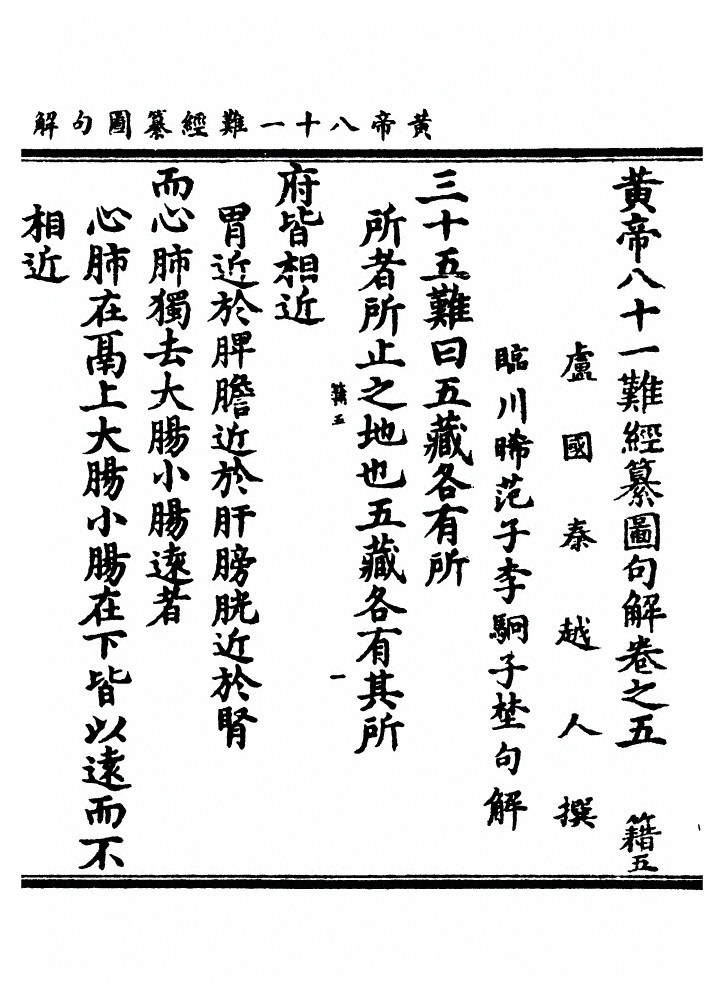 黃帝八十一難經纂圖句解
黃帝八十一難經纂圖句解卷之五 籍五
盧國秦越人撰
臨川晞范子李駉子埜句解
三十五難曰五藏各有所
所者所止之地也五藏各有其所
籍五
一
府皆相近
胃近於脾膽近於肝膀胱近於腎
而心肺獨去大腸小腸遠者
心肺在鬲上大腸小腸在下皆以遠而不
相近